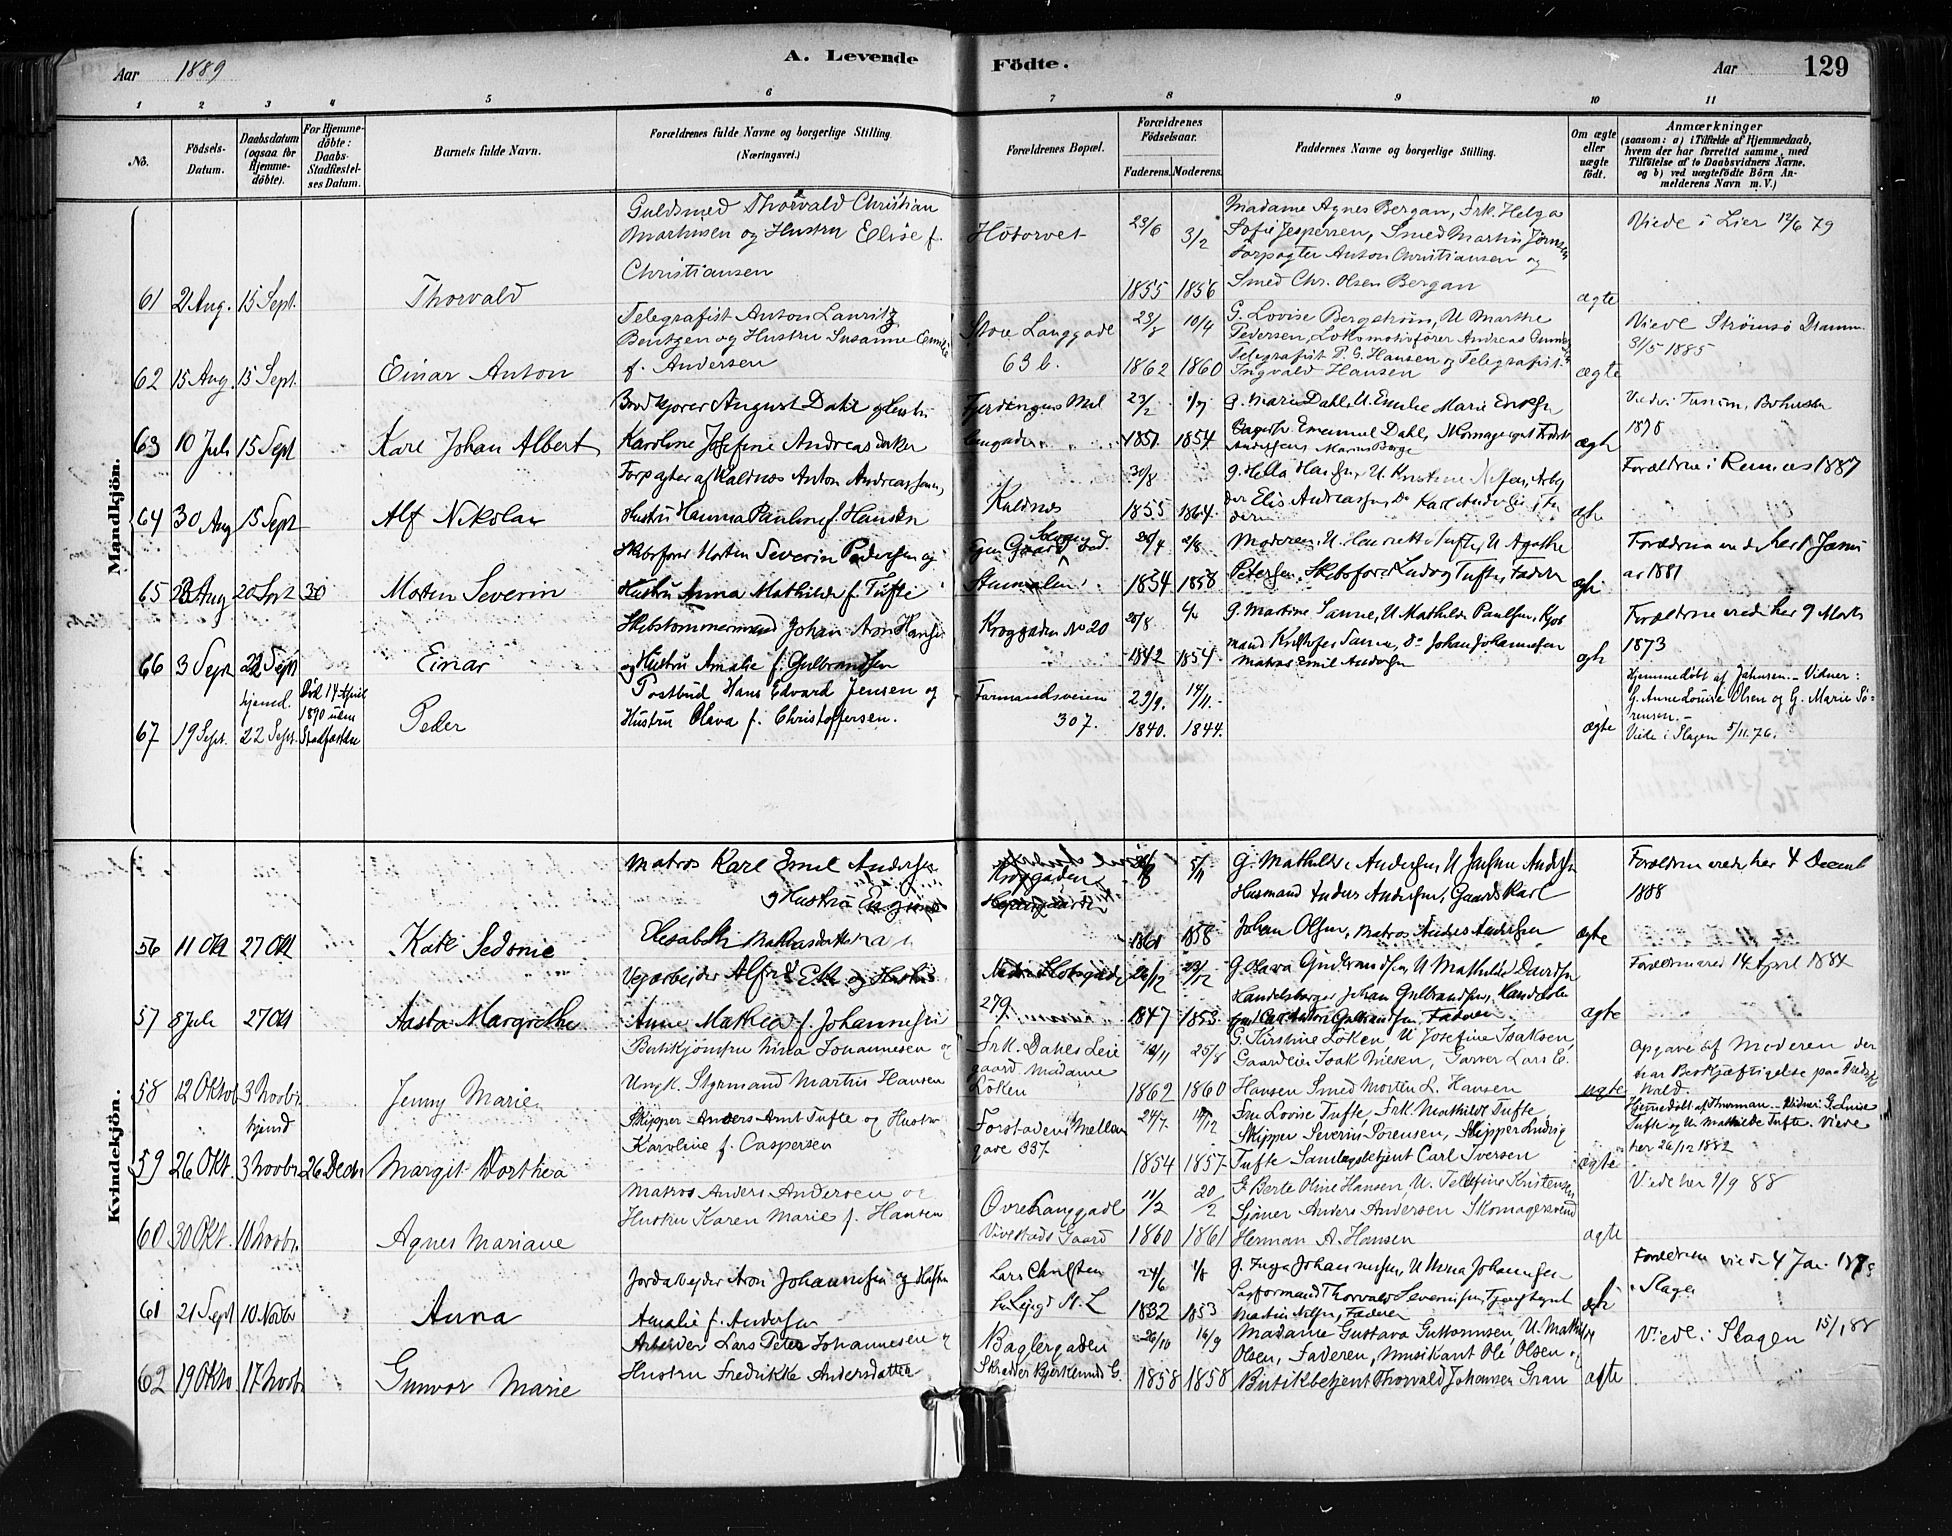 Aar 1889
A. Levende Födte.
Aar 129
1 2 3 4 5 6 7 8 9 10 11
No.
Födsels-Datum.
Daabsdatum (ogsaa for Hjemme-döbte).
For Hjemme-döbte: Daabs-Stadfæstel-ses Datum.
Barnets fulde Navn.
Forældrenes fulde Navne og borgerlige Stilling. (Næringsvei.)
Forældrenes Bopæl.
Forældrenes Födselsaar.
Faderens. Moderens.
Faddernes Navne og borgerlige Stilling.
Om ægte eller uægte födt.
Anmærkninger
(saasom: a) i Tilfælde af Hjemmedaab,
hvem der har forrettet samme, med
Tilföielse af to Daabsvidners Navne,
og b) ved uægtefödte Börn An-
melderens Navn m. V.)
Mandkjön.
Guldsmed Thorvald Christian
Markusen og Hustru Elise f.
Christiansen
61 21 Aug. 15 Sept. Thorvald
Hötorvet
23/6 3/2
1855 1856
Madame Agnes Bergan, Frk. Helga
Sofie Jespersen, Smed Martin
Forpagter Anton Christiansen og
Smed Chr. Olsen Bergan
ægte
Viede i Lier 12/6 79
Telegrafist Anton Lauritz
Bentzen og Hustru Susanne Emilie
f. Andersen
62 15 Aug 15 Sept. Einar Anton
Store Langgade
63 b.
23/8 10/4
1862 1860
G. Lovise Bergström, U Marthe
Pedersen, Lokomotivförer Andreas
Telegrafist P. G. Hansen og Telegrafist
Ingvald Hansen
ægte
Viede Strömsö Dramm.
31/5 1885
August Dahl og Hustru
Karoline Josefine Andreasdatter
63 10 Juli 15 Sept Karl Johan Albert
23/2
1851 1854
G. Marie Dahl, U. Emilie Marie
Emanuel Dahl,
Andersens Marius Berge
ægte
1878
Forpagter af Kaldnes Anton Andreassen,
Hustru Hanna Pauline f. Hansen
64 30 Aug 15 Sept Alf Nikolai
Kaldnes
30/8
1855 1864
Forældrene i Ramnes 1887
Skibsförer Morten Severin Pedersen og
Hustru Anna Mathilde f. Tufte
65 23 Aug 20 Sept 30 Morten Severin
Egen Gaard ved
Stenmalen
1854 1858
Moderen, U. Henriette Tufte, U Agathe
Petersen, Skibsförer Ludvig Tufte, Faderen
Forældrene viede her 1 Janu
ar 1881
Skibstömmermand Johan Aron Hansen
og Hustru Amalie f. Gulbrandsen
66 3 Sept 22 Sept Einar
Kroggaden No 20
25/8
1842 1854
G. Martine Sanne, U Mathilde Paulsen,
Johan Johannesen
Matros Emil Andersen
Forældrene viede her 9 Marts
1873
Postbud Hans Edvard Jensen og
Hustru Olava f. Christoffersen.
hjemd.
Död 14 April
1890 uden
Stadfæstelse
67 19 Sept. 22 Sept. Peder
Farmandsveien
307.
23/9. 14/11.
1840. 1844.
ægte
Hjemmedöbt af Jahnsen. – Vidner:
G. Anne Louise Olsen og G. Marie Sö-
rensen. –
Viede i Slagen 5/11.76.
Kvindekjön.
Matros Karl Emil Andersen
og Hustru
Elisabeth Mathiasdatter
56 11 Okt 27 Okt Kate Sedonie
Kroggaden
5/11
1861 1858
G. Mathilde Andersen, U Josefine Andersen
Husmand Anders Andersen, Gaardskarl
Johan Olsen, Matros Andreas Andersen
ægte
Forældrene viede her 4 Decemb
1888
Veiarbeider Alfred Eek og Hustru
Anne Mathea f. Johannesen
57 8 Juli 27 Okt Aasta Margrethe
Nedre Slotsgade
279
26/12 23/12
1847 1853
G. Olava Gulbrandsen, U Mathilde Davidsen
Handelsborger Johan Gulbrandsen,
Faderen
ægte
Forældrene viede 14 April 1884
Butikjomfru Nina Johannesen og
Ungk. Styrmand Martin Hansen
58 12 Oktob 3 Novbr. Jenny Marie
Frk. Dahls Leie
gaard. Madame
Löken
19/11 25/8
1862 1860
G. Kirstine Löken, U Josefine Isaksen,
Gaardeier Isak Nielsen, Garver Lars E.
Hansen Smed Morten L. Hansen
uægte
Opgave af Moderen der
har Beskjæftigelse paa Fredriks
vald.
Skipper Anders Amt Tufte og Hustru
Karoline f. Caspersen
hjemd
59 26 Okt. 3 Novbr. 26 Decbr Margit Dorthea
Forstadens Mellom
gade 337.
24/7. 19/12
1854 1857
Fru Lovise Tufte, Frk. Mathilde Tufte,
Skipper Severin Sörensen, Skipper Ludvig
Tufte Samlagsbetjent Carl Iversen
ægte
Hjemmedöbt af Thorman. – Vidner: G. Luise
Tufte og U. Mathilde Tufte. Viede
her 26/12 1882
Matros Anders Andersen og
Hustru Karen Marie f. Hansen
60 30 Okt. 10 Novbr. Agnes Mariane
Övre Langgade
Vivestads Gaard
11/2 20/2
1860 1861
G. Berte Oline Hansen, U. Josefine Kristensen
Sjömer Anders Andersen Skomagersvend
Herman A. Hansen
ægte
Viede her 9/9 88
Jordarbeider Aron Johannesen og Hustru
Amalie f. Andersen
61 21 Sept 10 Novbr Anna
Lars Christen
24/6 1/8
1832 1853
G. Inga Johannesen, U Mina Johannesen
Sagformand Thorvald Severinsen,
Martin Nilsen, Faderen
Forældrene viede 4 Jan.
i Slagen
Arbeider Lars Peter Johannesen og
Hustru Fredrikke Andersdatter
62 19 Oktb 17 Novbr Gunvor Marie
Baglergaden
Skrædder Bjerkelunds G.
26/10 16/9
1858 1858
Madame Gustava Guttormsen, U. Mathilde
Olsen, Faderen, Musikant Ole Olsen og
Butikbetjent Thorvald Johansen Gran
ægte
Viede i Slagen 15/1 88